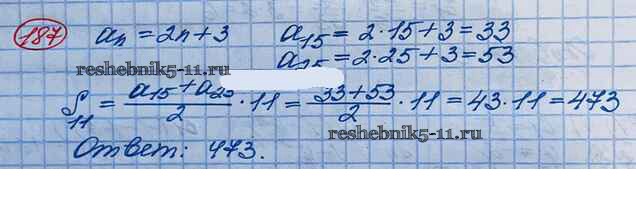 187 aₙ = 2n + 3 a₁₅ = 2 · 15 + 3 = 33
a₂₅ = 2 · 25 + 3 = 53
reshebnik5-11.ru
S₁₁ = (a₁₅ + a₂₅)/2 · 11 = (33 + 53)/2 · 11 = 43 · 11 = 473
reshebnik5-11.ru
Ответ: 473.